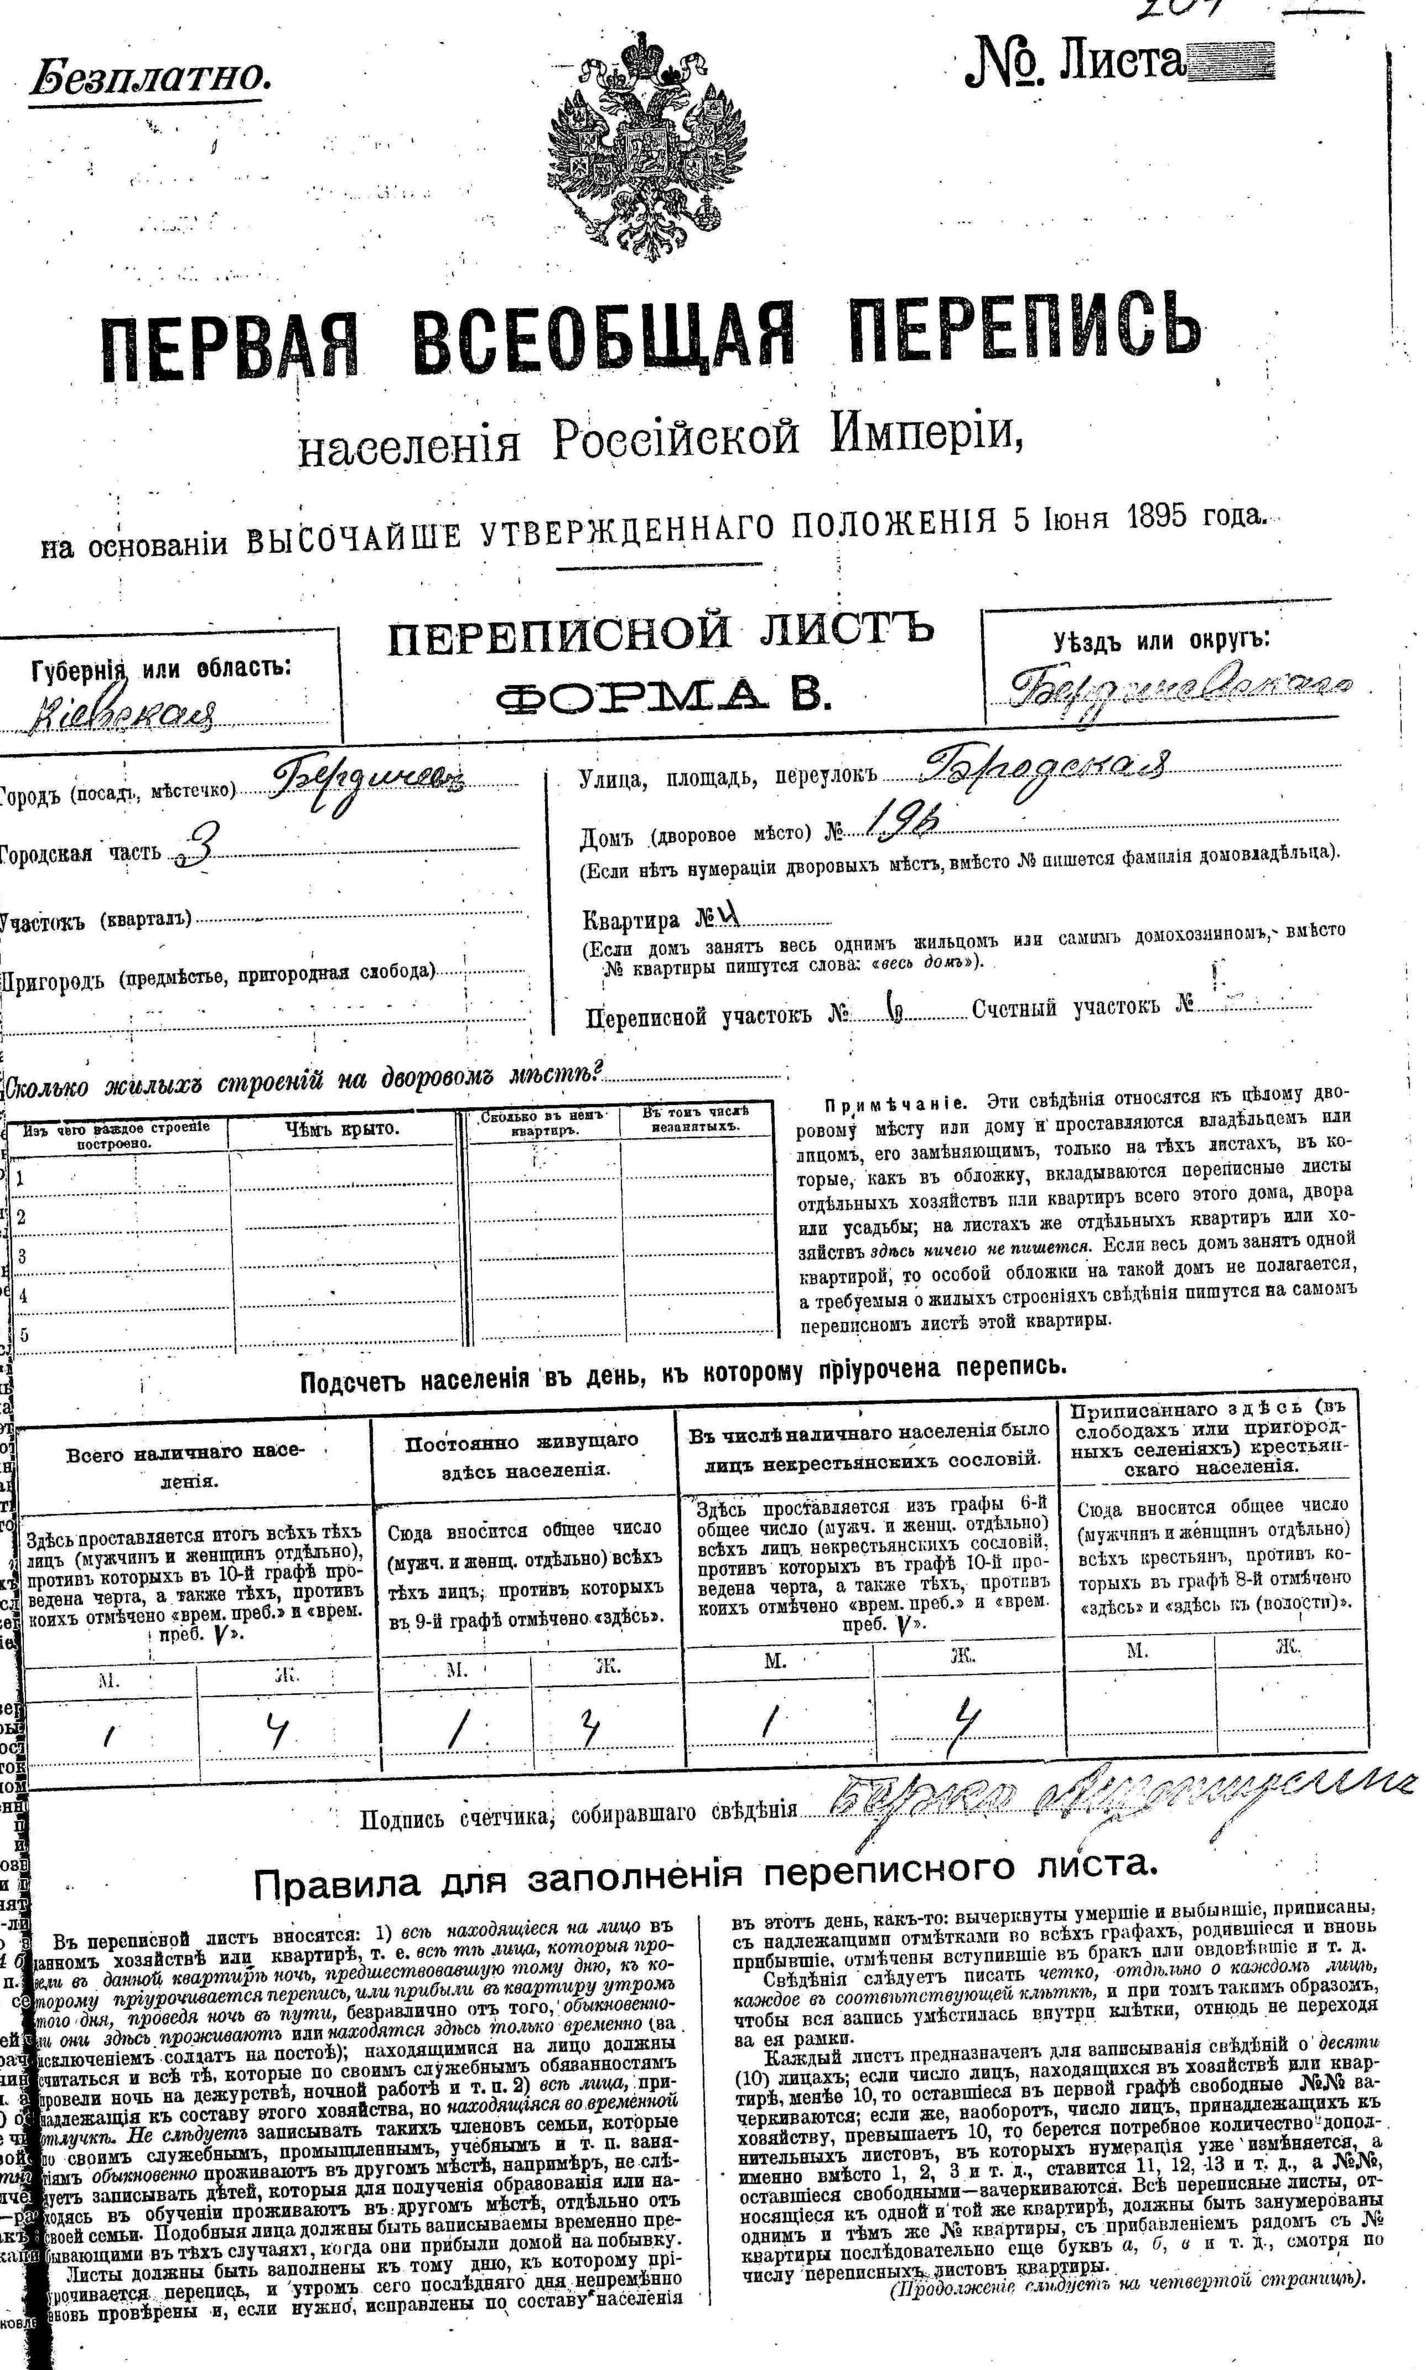 Безплатно.
№. Листа
ПЕРВАЯ ВСЕОБЩАЯ ПЕРЕПИСЬ
населенія Россійской Имперіи,
на основаніи ВЫСОЧАЙШЕ УТВЕРЖДЕННАГО ПОЛОЖЕНІЯ 5 Іюня 1895 года.
ПЕРЕПИСНОЙ ЛИСТЪ
ФОРМА В.
Губернія или область:
Кіевская
Уѣздъ или округъ:
Бердичевскаго
Городъ (посадъ, мѣстечко) Бердичевъ
Городская часть 3
Участокъ (кварталъ)
Пригородъ (предмѣстье, пригородная слобода)
Улица, площадь, переулокъ Бродская
Домъ (дворовое мѣсто) №
(Если нѣтъ нумераціи дворовыхъ мѣстъ, вмѣсто № пишется фамилія домовладѣльца).
Квартира № 4
(Если домъ занятъ весь однимъ жильцомъ или самимъ домохозяиномъ, вмѣсто
№ квартиры пишутся слова: «весь домъ»).
Переписной участокъ № 6 Счетный участокъ №
Сколько жилыхъ строеній на дворовомъ мѣстѣ?
Изъ чего каждое строеніе построено.
Чѣмъ крыто.
Сколько въ немъ квартиръ.
Въ томъ числѣ незанятыхъ.
1
2
3
4
5
Примѣчаніе. Эти свѣдѣнія относятся къ цѣлому дво-
ровому мѣсту или дому и проставляются владѣльцемъ или
лицомъ, его замѣняющимъ, только на тѣхъ листахъ, въ ко-
торые, какъ въ обложку, вкладываются переписные листы
отдѣльныхъ хозяйствъ или квартиръ всего этого дома, двора
или усадьбы; на листахъ же отдѣльныхъ квартиръ или хо-
зяйствъ здѣсь ничего не пишется. Если весь домъ занятъ одной
квартирой, то особой обложки на такой домъ не полагается,
а требуемыя о жилыхъ строеніяхъ свѣдѣнія пишутся на самомъ
переписномъ листѣ этой квартиры.
Подсчетъ населенія въ день, къ которому пріурочена перепись.
Всего наличнаго насе-
ленія.
Здѣсь проставляется итогъ всѣхъ тѣхъ
лицъ (мужчинъ и женщинъ отдѣльно),
противъ которыхъ въ 10-й графѣ про-
ведена черта, а также тѣхъ, противъ
коихъ отмѣчено «врем. преб.» и «врем.
преб. V».
М. Ж.
1 4
Постоянно живущаго
здѣсь населенія.
Сюда вносится общее число
(мужч. и женщ. отдѣльно) всѣхъ
тѣхъ лицъ, противъ которыхъ
въ 9-й графѣ отмѣчено «здѣсь».
М. Ж.
1
Въ числѣ наличнаго населенія было
лицъ некрестьянскихъ сословій.
Здѣсь проставляется изъ графы 6-й
общее число (мужч. и женщ. отдѣльно)
всѣхъ лицъ некрестьянскихъ сословій,
противъ которыхъ въ графѣ 10-й про-
ведена черта, а также тѣхъ, противъ
коихъ отмѣчено «врем. преб.» и «врем.
преб. V».
М. Ж.
1 4
Приписаннаго здѣсь (въ
слободахъ или пригород-
ныхъ селеніяхъ) крестьян-
скаго населенія.
Сюда вносится общее число
(мужчинъ и женщинъ отдѣльно)
всѣхъ крестьянъ, противъ ко-
торыхъ въ графѣ 8-й отмѣчено
«здѣсь» и «здѣсь къ (волости)».
М. Ж.
Подпись счетчика, собиравшаго свѣдѣнія
Правила для заполненія переписного листа.
Въ переписной листъ вносятся: 1) всѣ находящіеся на лицо въ
данномъ хозяйствѣ или квартирѣ, т. е. всѣ тѣ лица, которыя про-
вели въ данной квартирѣ ночь, предшествовавшую тому дню, къ ко-
торому пріурочивается перепись, или прибыли въ квартиру утромъ
того дня, проведя ночь въ пути, безразлично отъ того, обыкновенно-
ли они здѣсь проживаютъ или находятся здѣсь только временно (за
исключеніемъ солдатъ на постоѣ); находящимися на лицо должны
считаться и всѣ тѣ, которые по своимъ служебнымъ обязанностямъ
провели ночь на дежурствѣ, ночной работѣ и т. п. 2) всѣ лица, при-
надлежащія къ составу этого хозяйства, но находящіяся во временной
отлучкѣ. Не слѣдуетъ записывать такихъ членовъ семьи, которые
по своимъ служебнымъ, промышленнымъ, учебнымъ и т. п. заня-
тіямъ обыкновенно проживаютъ въ другомъ мѣстѣ, напримѣръ, не слѣ-
дуетъ записывать дѣтей, которыя для полученія образованія или на-
ходясь въ обученіи проживаютъ въ другомъ мѣстѣ, отдѣльно отъ
своей семьи. Подобныя лица должны быть записываемы временно пре-
бывающими въ тѣхъ случаяхъ, когда они прибыли домой на побывку.
Листы должны быть заполнены къ тому дню, къ которому прі-
урочивается перепись, и утромъ сего послѣдняго дня непремѣнно
вновь провѣрены и, если нужно, исправлены по составу населенія
въ этотъ день, какъ-то: вычеркнуты умершіе и выбывшіе, приписаны,
съ надлежащими отмѣтками во всѣхъ графахъ, родившіеся и вновь
прибывшіе, отмѣчены вступившіе въ бракъ или овдовѣвшіе и т. д.
Свѣдѣнія слѣдуетъ писать четко, отдѣльно о каждомъ лицѣ,
каждое въ соотвѣтствующей клѣткѣ, и при томъ такимъ образомъ,
чтобы вся запись умѣстилась внутри клѣтки, отнюдь не переходя
за ея рамки.
Каждый листъ предназначенъ для записыванія свѣдѣній о десяти
(10) лицахъ; если число лицъ, находящихся въ хозяйствѣ или квар-
тирѣ, менѣе 10, то оставшіеся въ первой графѣ свободные №№ за-
черкиваются; если же, наоборотъ, число лицъ, принадлежащихъ къ
хозяйству, превышаетъ 10, то берется потребное количество допол-
нительныхъ листовъ, въ которыхъ нумерація уже измѣняется, а
именно вмѣсто 1, 2, 3 и т. д., ставится 11, 12, 13 и т. д., а №№,
оставшіеся свободными—зачеркиваются. Всѣ переписные листы, от-
носящіеся къ одной и той же квартирѣ, должны быть занумерованы
однимъ и тѣмъ же № квартиры, съ прибавленіемъ рядомъ съ №
квартиры послѣдовательно еще буквъ а, б, в и т. д., смотря по
числу переписныхъ листовъ квартиры.
(Продолженіе слѣдуетъ на четвертой страницѣ).